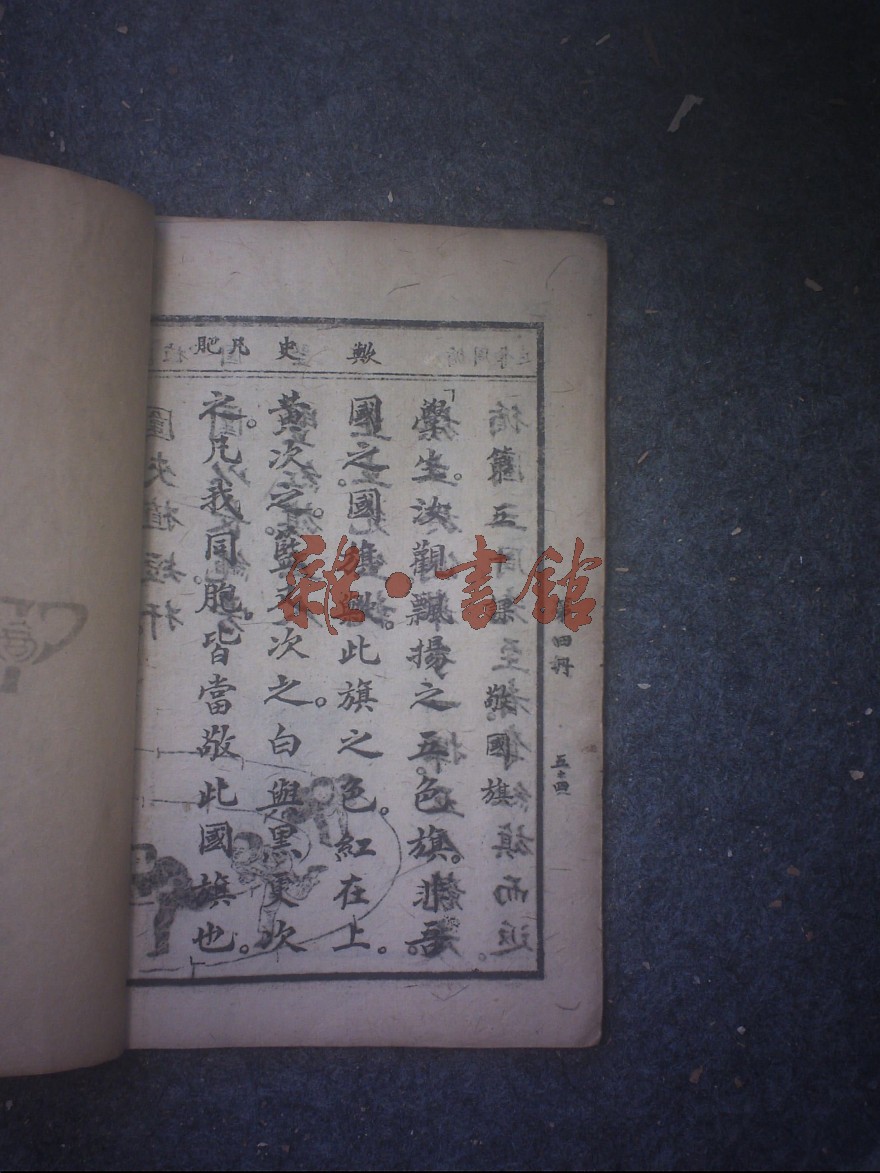 歟 更 凡胞
第五 敬國旗
學生。汝觀飄揚之五色旗。非吾
國之國旗歟。此旗之色。紅在上。
黃次之。藍又次之。白與黑更次
之。凡我同胞。皆當敬此國旗也。
第四冊
雜·書館